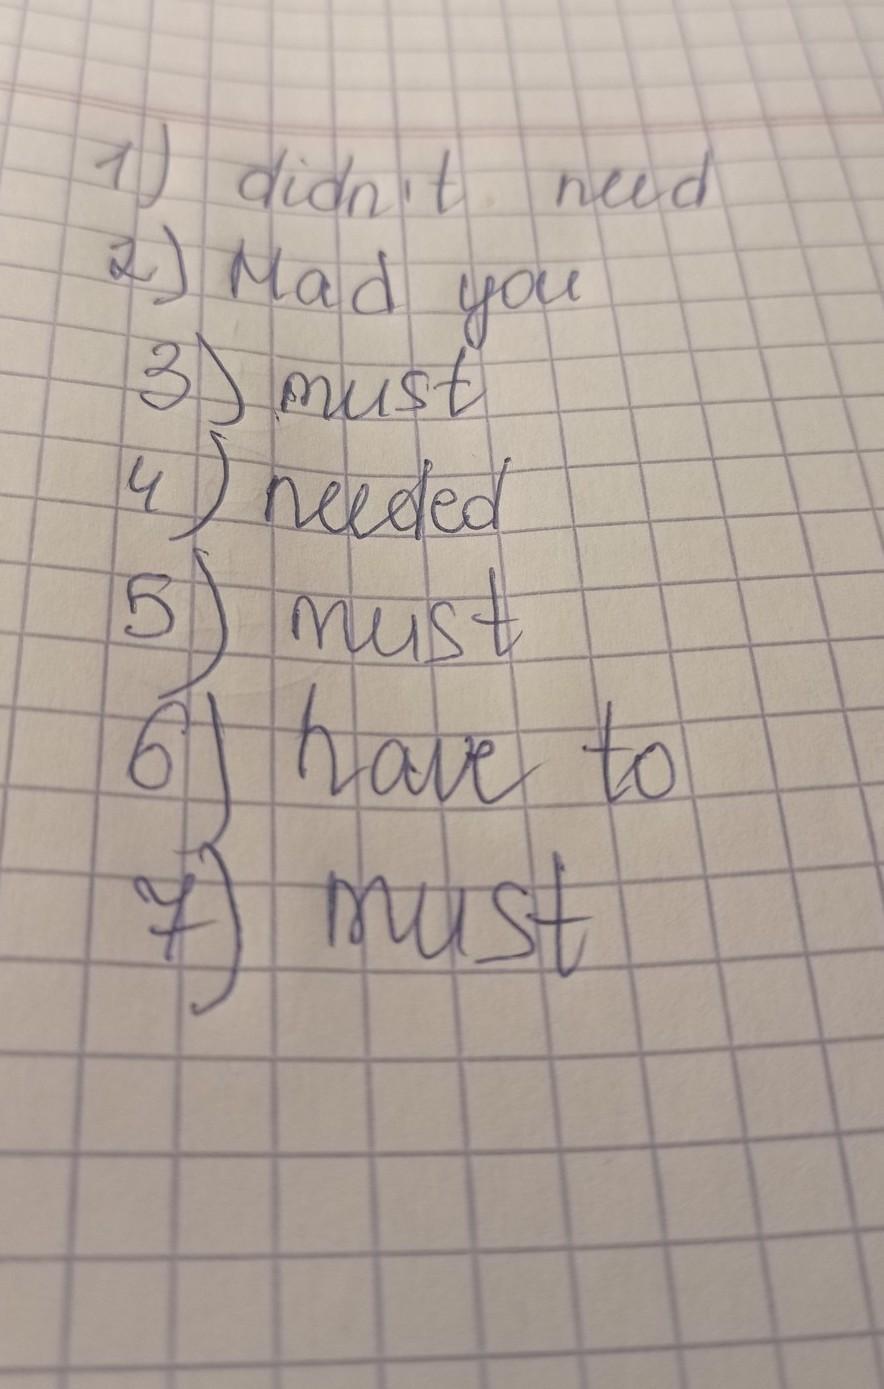 1) didn't need
2) Had you
3) must
4) needed
5) must
6) have to
7) must